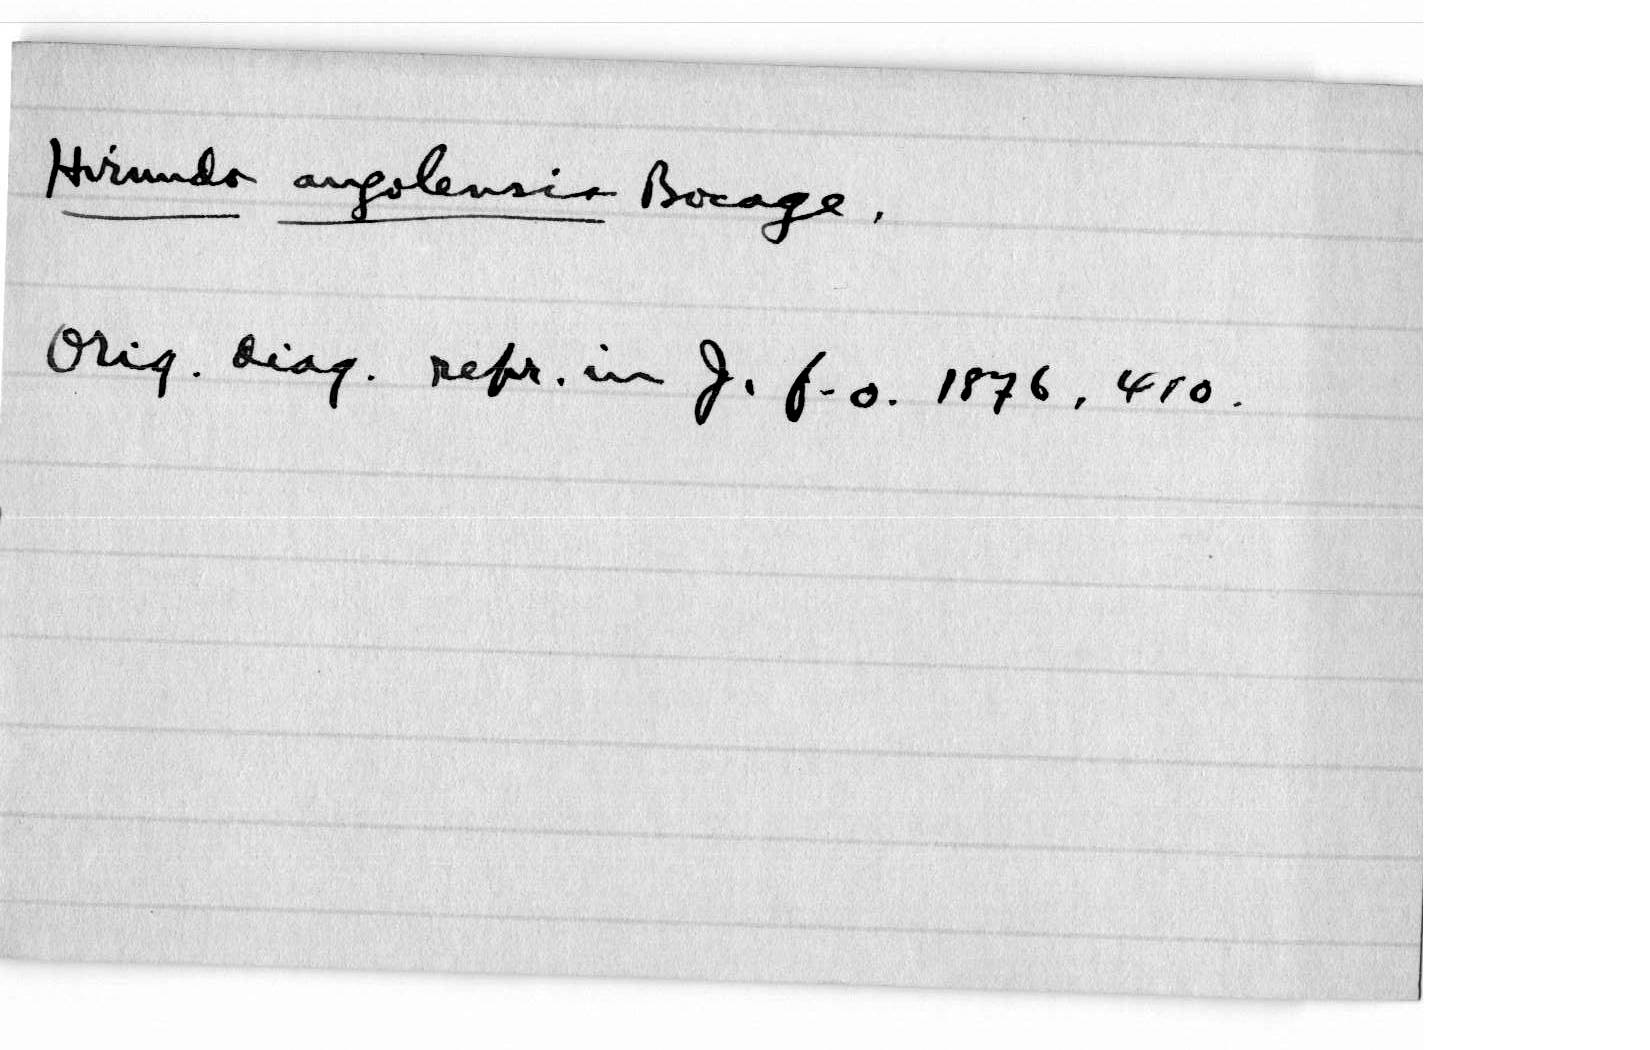 Hirundo angolensis Bocage,
Orig. diag. repr. in J. f. O. 1876, 410.